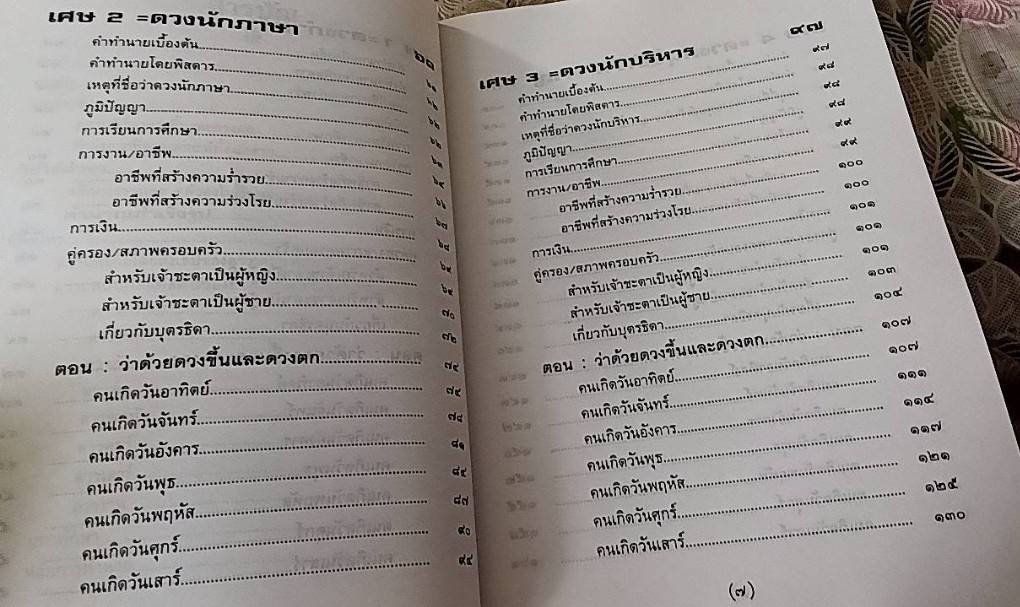 เศษ 2 =ดวงนักภาษา ๖๑
คำทำนายเบื้องต้น ๖๑
คำทำนายโดยพิสดาร ๖๒
เหตุที่ชื่อว่าดวงนักภาษา ๖๒
ภูมิปัญญา ๖๒
การเรียนการศึกษา ๖๓
การงาน/อาชีพ ๖๔
อาชีพที่สร้างความร่ำรวย ๖๖
อาชีพที่สร้างความร่วงโรย ๖๗
การเงิน ๖๘
คู่ครอง/สภาพครอบครัว ๖๙
สำหรับเจ้าชะตาเป็นผู้หญิง ๖๙
สำหรับเจ้าชะตาเป็นผู้ชาย ๗๐
เกี่ยวกับบุตรธิดา ๗๒
ตอน : ว่าด้วยดวงขึ้นและดวงตก ๗๔
คนเกิดวันอาทิตย์ ๗๔
คนเกิดวันจันทร์ ๗๘
คนเกิดวันอังคาร ๘๑
คนเกิดวันพุธ ๘๔
คนเกิดวันพฤหัส ๘๗
คนเกิดวันศุกร์ ๙๐
คนเกิดวันเสาร์ ๙๔
เศษ 3 =ดวงนักบริหาร ๙๗
คำทำนายเบื้องต้น ๙๗
คำทำนายโดยพิสดาร ๙๘
เหตุที่ชื่อว่าดวงนักบริหาร ๙๘
ภูมิปัญญา ๙๘
การเรียนการศึกษา ๙๙
การงาน/อาชีพ ๙๙
อาชีพที่สร้างความร่ำรวย ๑๐๐
อาชีพที่สร้างความร่วงโรย ๑๐๐
การเงิน ๑๐๑
คู่ครอง/สภาพครอบครัว ๑๐๑
สำหรับเจ้าชะตาเป็นผู้หญิง ๑๐๑
สำหรับเจ้าชะตาเป็นผู้ชาย ๑๐๓
เกี่ยวกับบุตรธิดา ๑๐๔
ตอน : ว่าด้วยดวงขึ้นและดวงตก ๑๐๗
คนเกิดวันอาทิตย์ ๑๐๗
คนเกิดวันจันทร์ ๑๑๑
คนเกิดวันอังคาร ๑๑๔
คนเกิดวันพุธ ๑๑๗
คนเกิดวันพฤหัส ๑๒๑
คนเกิดวันศุกร์ ๑๒๕
คนเกิดวันเสาร์ ๑๓๐
(๗)